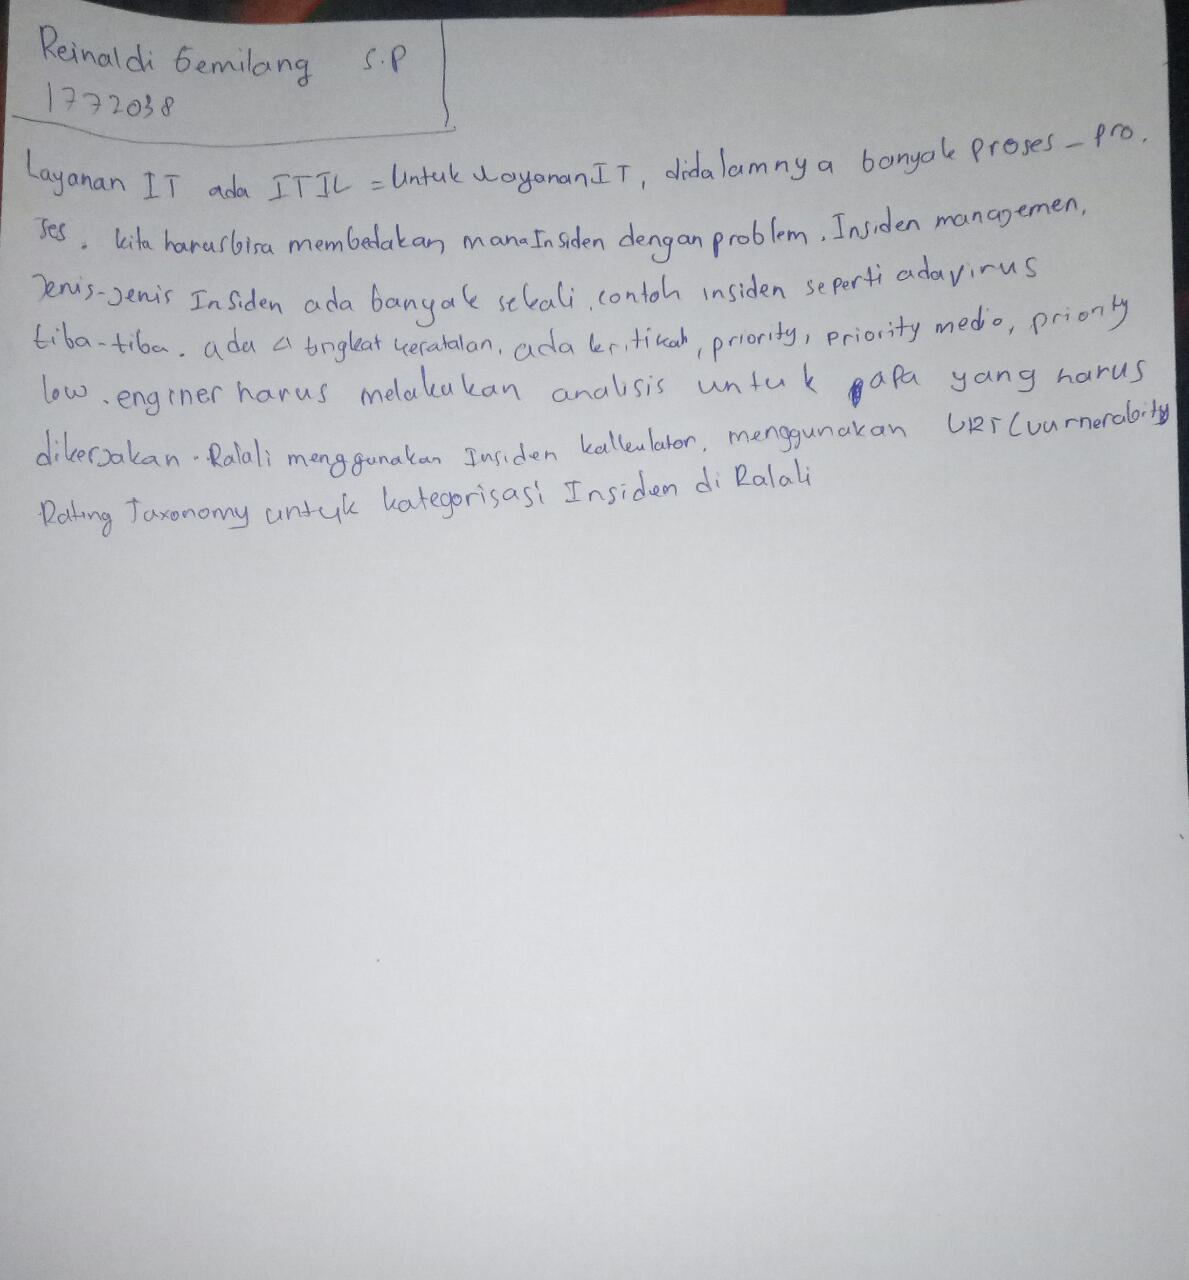 Reinaldi Gemilang S.P
1772038
Layanan IT ada ITIL = Untuk layanan IT, didalamnya banyak proses - pro.
ses. kita harus bisa membedakan mana Insiden dengan problem. Insiden managemen,
Jenis-Jenis Insiden ada banyak sekali. contoh insiden seperti ada virus
tiba-tiba. ada 4 tingkat, ada kritikah, priority, priority medio, priority
low. enginer harus melakukan analisis untuk apa yang harus
dikerjakan. Ralali menggunakan Insiden kalkulator, menggunakan VRT (vurnerability
Rating Taxonomy untuk kategorisasi Insiden di Ralali